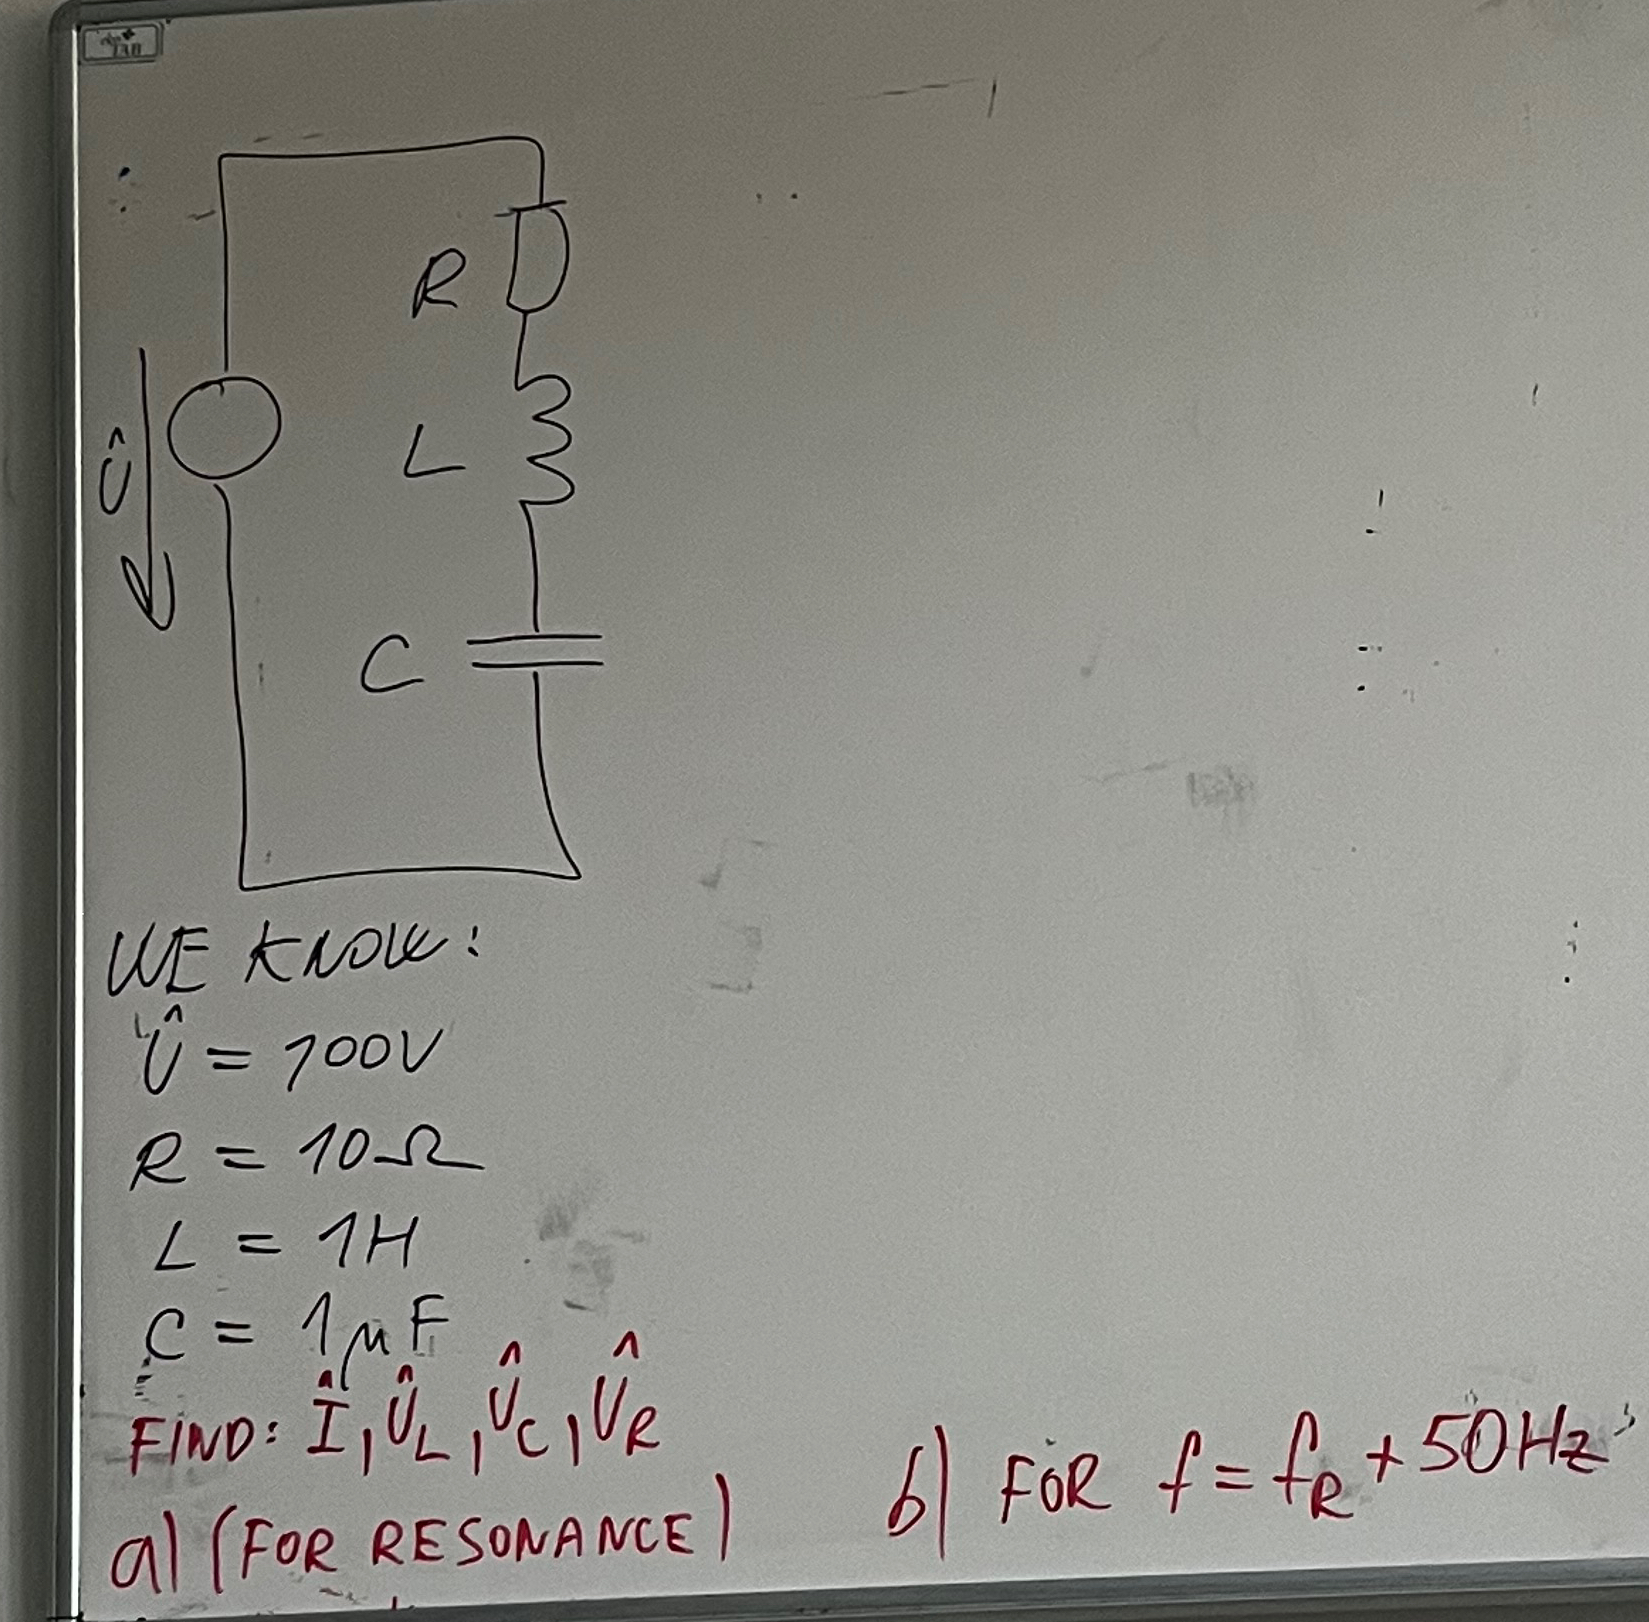 R
L
Û
C
WE KNOW:
Û = 100V
R = 10Ω
L = 1H
C = 1μF
FIND: Î, Û_L, Û_C, Û_R
a) (FOR RESONANCE)
b) FOR f = f_R + 50Hz